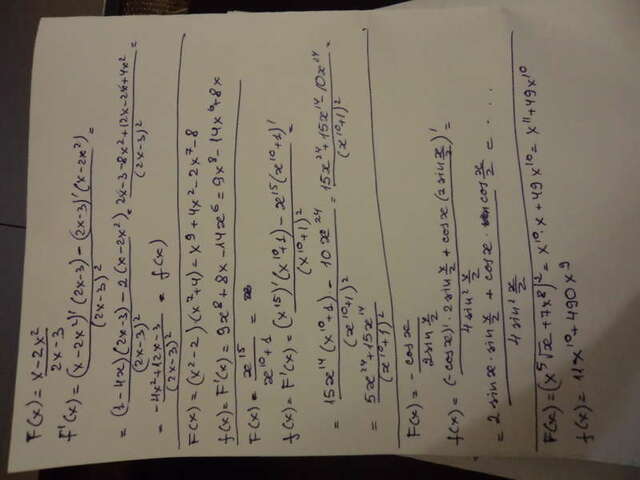 F(x) = x-2x²/2x-3
f'(x) = (x-2x²)'(2x-3) - (2x-3)'(x-2x²)/(2x-3)² =
= (1-4x)(2x-3)-2(x-2x²)/(2x-3)² = 2x-3-8x²+12x-2x+4x²/(2x-3)² =
= -4x²+12x-3/(2x-3)² = f(x)
F(x) = (x²-2)(x²+4)-x⁹+4x²-2x⁷-8
f(x) = F'(x) = 9x⁸+8x-14x⁶ = 9x⁸-14x⁶+8x
F(x) = x¹⁵/x¹⁰+1 =
f(x) = F'(x) = (x¹⁵)'(x¹⁰+1) - x¹⁵(x¹⁰+1)'/(x¹⁰+1)² =
= 15x¹⁴(x¹⁰+1) - 10x²⁴/(x¹⁰+1)² = 15x²⁴+15x¹⁴-10x²⁴/(x¹⁰+1)² =
= 5x²⁴+15x¹⁴/(x¹⁰+1)²
F(x) = -cosx/2sin x/2
f(x) = (-cosx)'·2sin x/2 + cosx(2sin x/2)'/4sin² x/2 =
= 2sinx·sin x/2 + cosx·cos x/2/4sin² x/2 = ....
F(x) = (x⁵√x+7x⁸)² = x¹⁰·x+49x¹⁰ = x¹¹+49x¹⁰
f(x) = 11x¹⁰+490x⁹